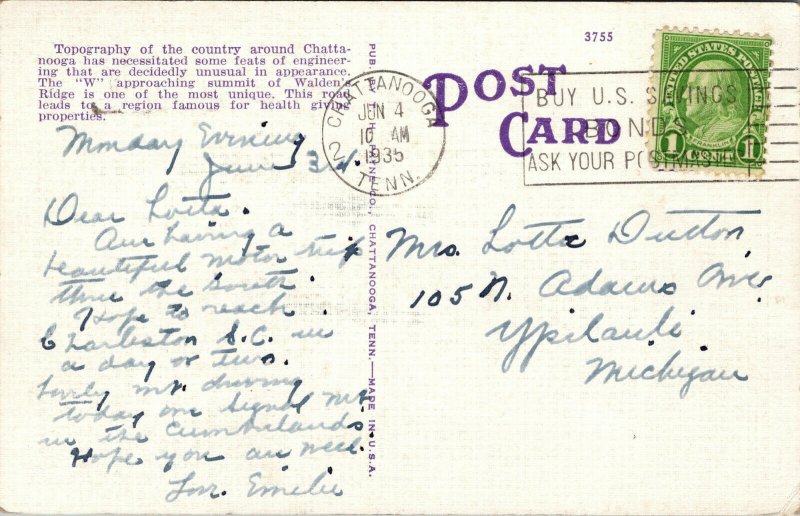 Topography of the country around Chatta-
nooga has necessitated some feats of engineer-
ing that are decidedly unusual in appearance.
The "W" approaching summit of Walden's
Ridge is one of the most unique. This road
leads to a region famous for health giving
properties.
3755
POST
CARD
CHATTANOOGA
TENN.
JUN 4
10 AM
1935
2
BUY U.S. SAVINGS
BONDS
ASK YOUR POSTMASTER
UNITED STATES POSTAGE
FRANKLIN
1 CENT 1
PUB. CO., CHATTANOOGA, TENN.—MADE IN U.S.A.
Monday Evening
June 3
Dear Lotta.
Am having a
beautiful motor trip
thru the South.
Hope to reach
Charleston S.C. in
a day or two.
Lovely mt. driving
today on Signal Mt.
in the Cumberlands.
Hope you are well.
Love Emilie
Mrs. Lotta Dutton
105 N. Adams Ave
Ypsilanti
Michigan